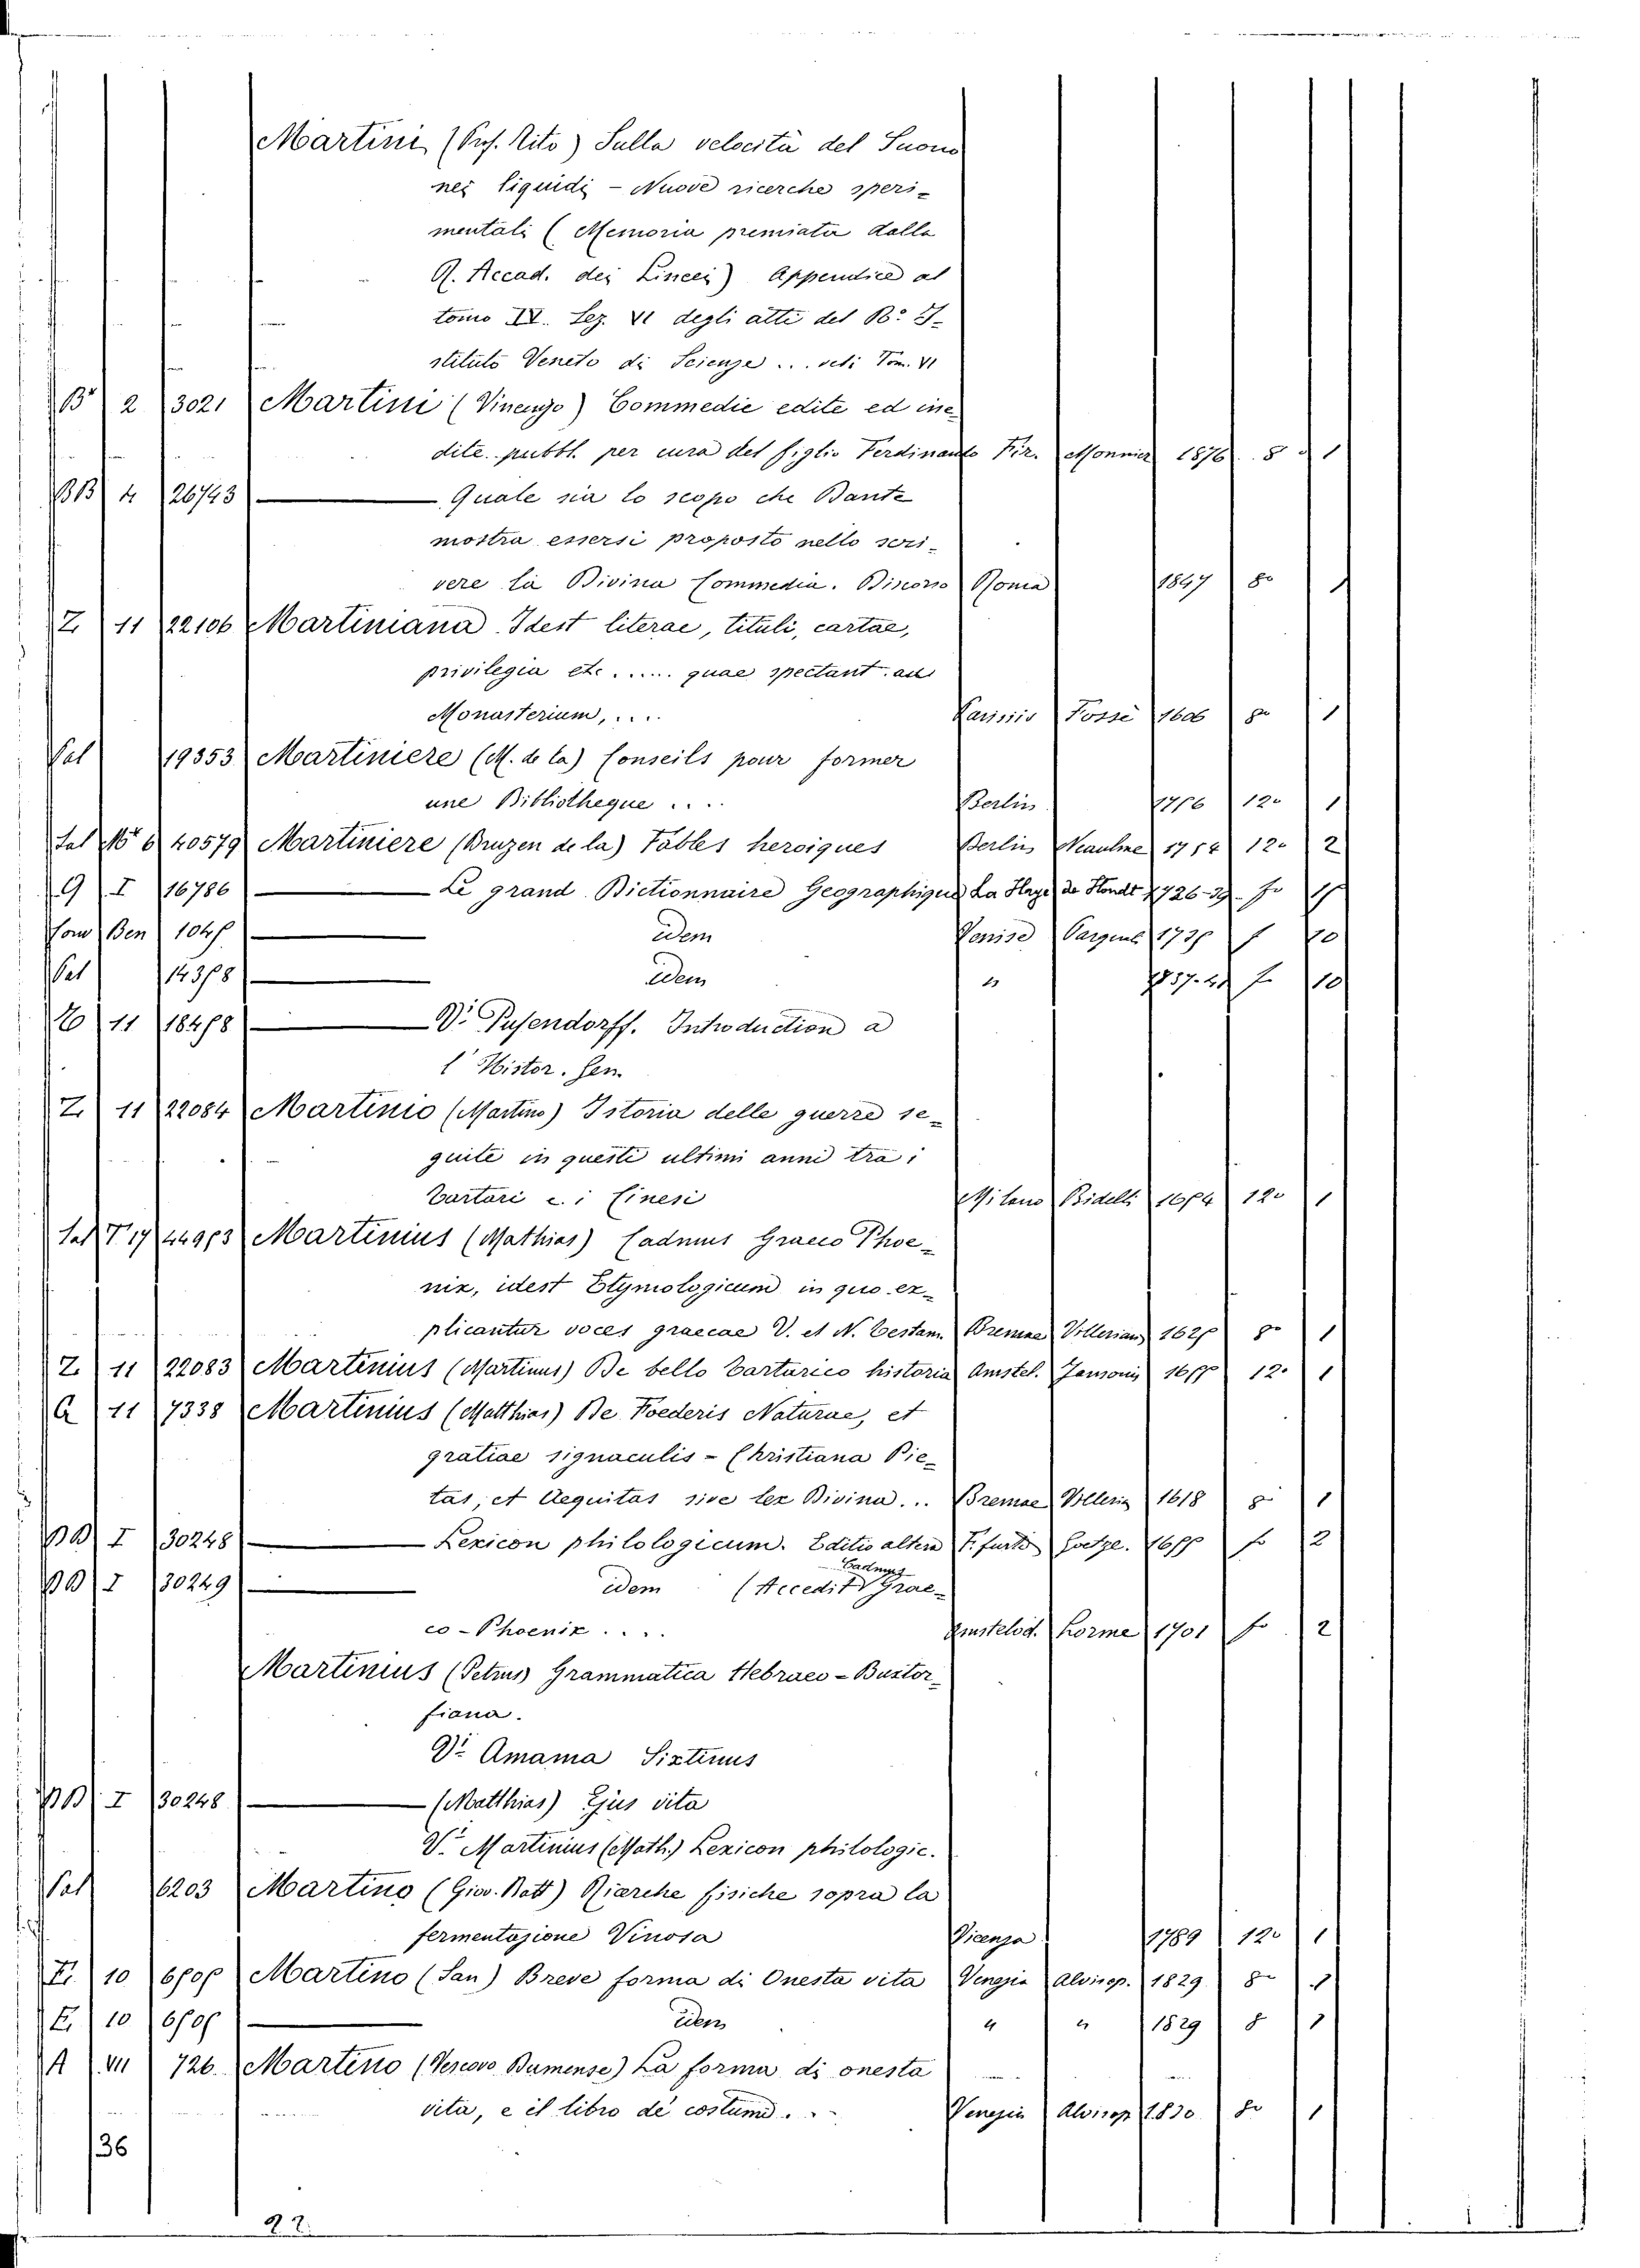 Martini (Prof. Tito) Sulla velocità del Suono
nei liquidi - Nuove ricerche speri-
mentali (Memoria premiata dalla
R. Accad. dei Lincei) Appendice al
tomo IV. Sez. VI degli atti del R. I-
stituto Veneto di Scienze ... Tom. VI
B 2 3021 Martini (Vincenzo) Commedie edite ed ine
dite. pubbl. per cura del figlio Ferdinando Fir. Monnier 1876 8 1
BB 4 26743 Quale sia lo scopo che Dante
mostra essersi proposto nello scri-
vere la Divina Commedia. Discorso Roma 1847 8o 1
Z 11 22106 Martiniana Idest literae, tituli, cartae,
privilegia etc ..... quae spectant ad
Monasterium, .... Parisiis Fosse 1606 8o 1
Sal 19353 Martiniere (M. de la) Conseils pour former
une Bibliotheque .... Berlin 1756 12o 1
Sal 6 40579 Martiniere (Bruzen de la) Fables heroiques Berlin Neaulme 1754 12o 2
9 I 16786 Le grand Dictionnaire Geographique La Haye de Hondt 1726-39 fo
Ben idem Venise 10
Sal idem " fo 10
11 V. Pufendorff. Introduction a
l'Histor. Gen.
Z 11 22084 Martinio (Martino) Istoria delle guerre se-
guite in questi ultimi anni tra i
Tartari e i Cinesi Milano Bidelli 1654 12o 1
Sal T 17 44953 Martinius (Mathias) Cadmus Graeco Phoe-
nix, idest Etymologicum in quo ex-
plicantur voces graecae V. et N. Testam. Bremae Villerian 1625 8o 1
Z 11 22083 Martinius (Martinus) De bello Tartarico historia Amstel. Jansonis 1655 12o 1
a 11 7338 Martinius (Matthias) De Foederis Naturae, et
gratiae signaculis - Christiana Pie-
tas, et Aequitas sive lex Divina... Bremae Villerin 1618 8o 1
I 30248 Lexicon philologicum. Editio altera Goetze. 1655 fo 2
I 30249 idem (Accedit Cadmus Grae-
co-Phoenix .... Amstelod. Lorme 1701 fo 2
Martinius (Petrus) Grammatica Hebraeo-Buxtor-
fiana.
V. Amama Sixtinus
I 30248 (Matthias) Ejus vita
V. Martinius (Math.) Lexicon philologic.
Sal 6203 Martino (Giov. Batt) Ricerche fisiche sopra la
fermentazione Vinosa Vicenza 1789 12o 1
E 10 6505 Martino (San) Breve forma di Onesta vita Venezia Alvisop. 1829 8o 1
E 10 6505 idem " " 1829 8 1
A VII 726 Martino (Vescovo Dumense) La forma di onesta
vita, e il libro de costumi... Venezia Alvisop 1830 8o 1
36
22.